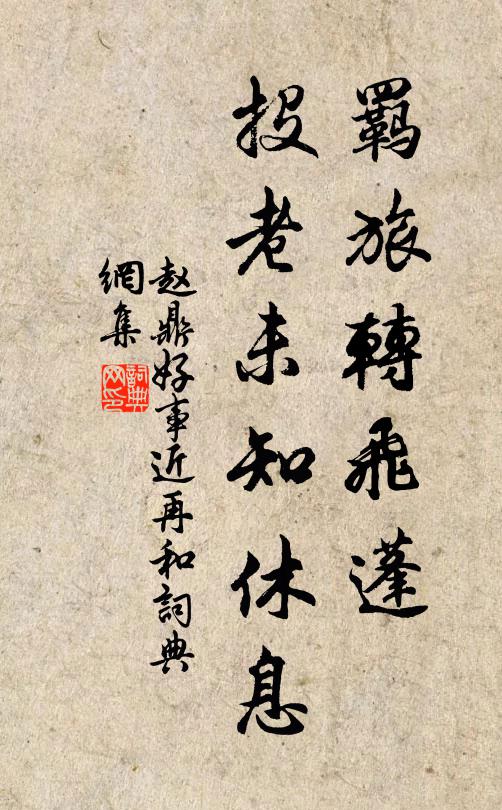 羈旅轉飛蓬
投老未知休息
赵鼎好事近再和詞典
網集
詞典
网印